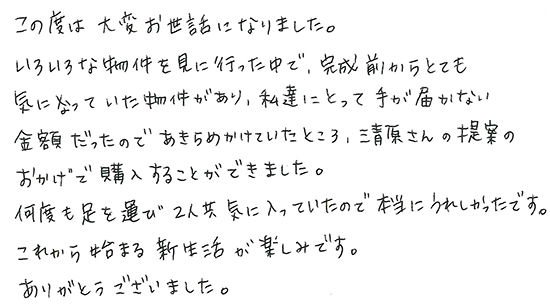 この度は大変お世話になりました。
いろいろな物件を見に行った中で、完成前からとても
気になっていた物件があり、私達にとって手が届かない
金額だったのであきらめかけていたところ、清原さんの提案の
おかげで購入することができました。
何度も足を運び2人共気に入っていたので本当にうれしかったです。
これから始まる新生活が楽しみです。
ありがとうございました。